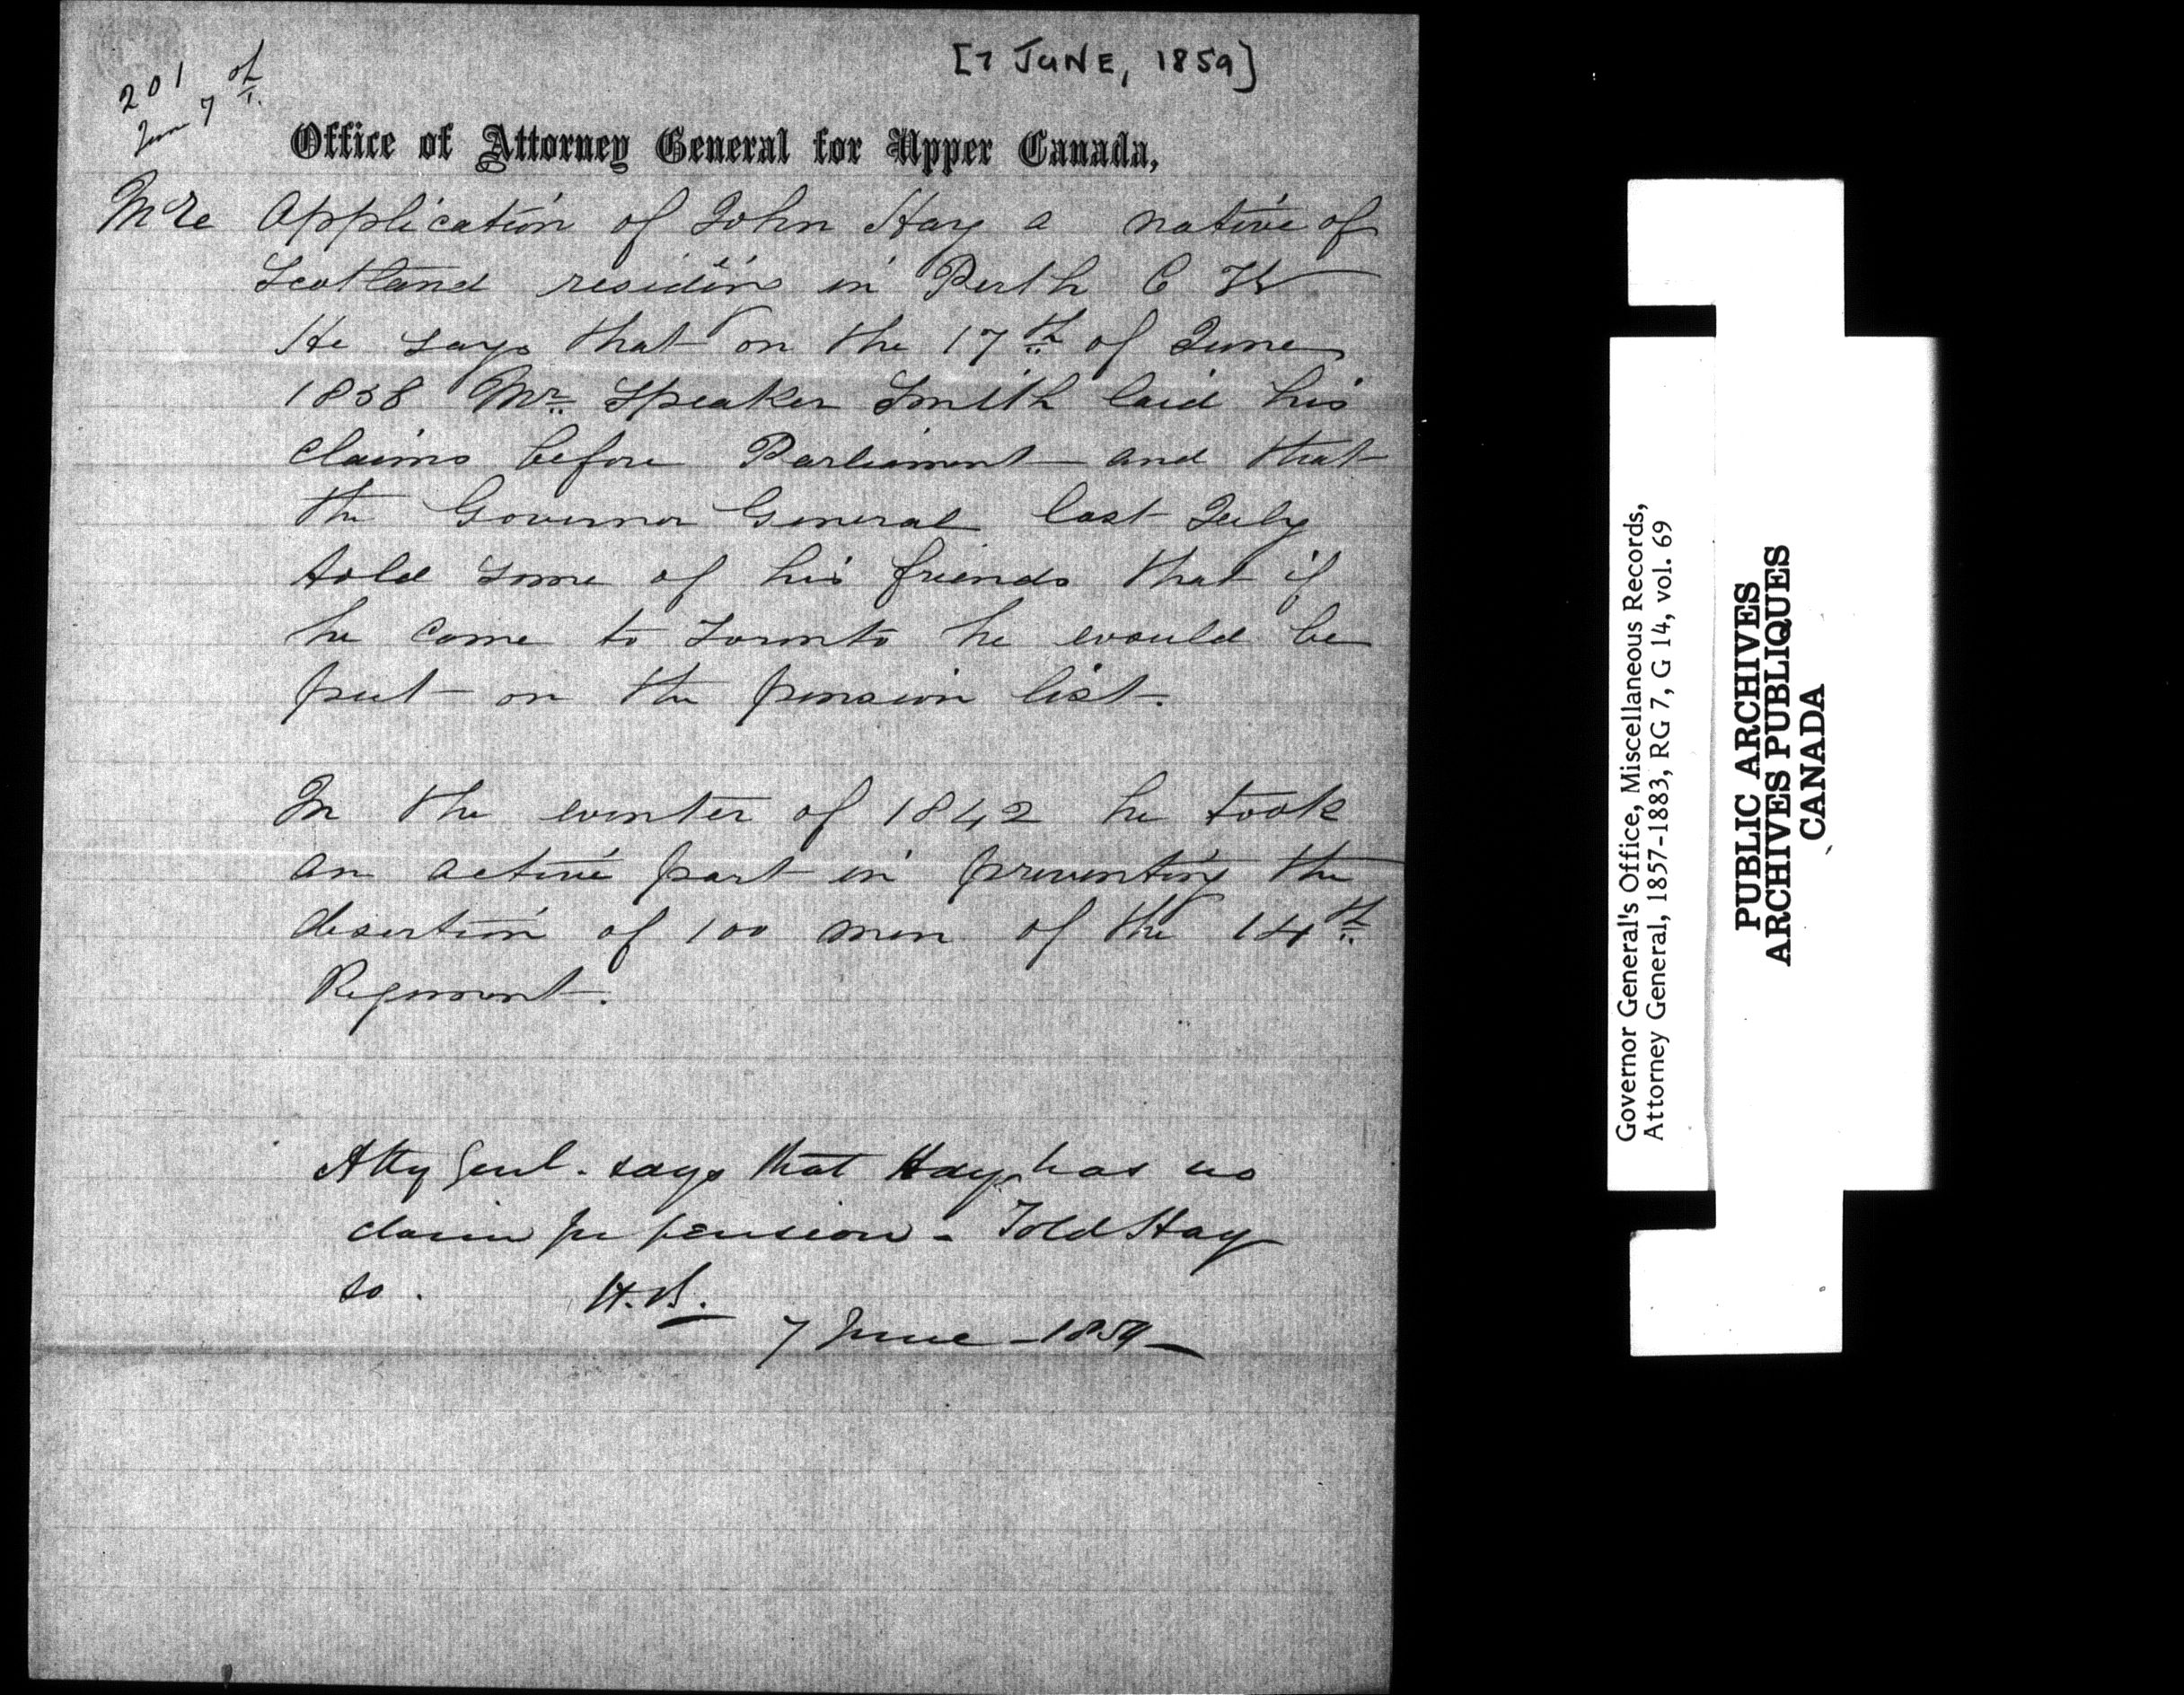 [7 JUNE, 1859]
201 of
June 7
Office of Attorney General for Upper Canada,
Application of John Hay a native of
Scotland residing in Perth C W
He says that on the 17th of June
1858 Mr Speaker Smith laid his
claims before Parliament and that
the Governor General last July
told some of his friends that if
he come to Toronto he would be
put on the pension list.
In the winter of 1842 he took
an active part in preventing the
desertion of 100 men of the 14th
Regiment.
Atty Genl. says that Hay has no
claim for pension - Told Hay
so. H.B.
7 June - 1859
Governor General's Office, Miscellaneous Records,
Attorney General, 1857-1883, RG 7, G 14, vol. 69
PUBLIC ARCHIVES
ARCHIVES PUBLIQUES
CANADA